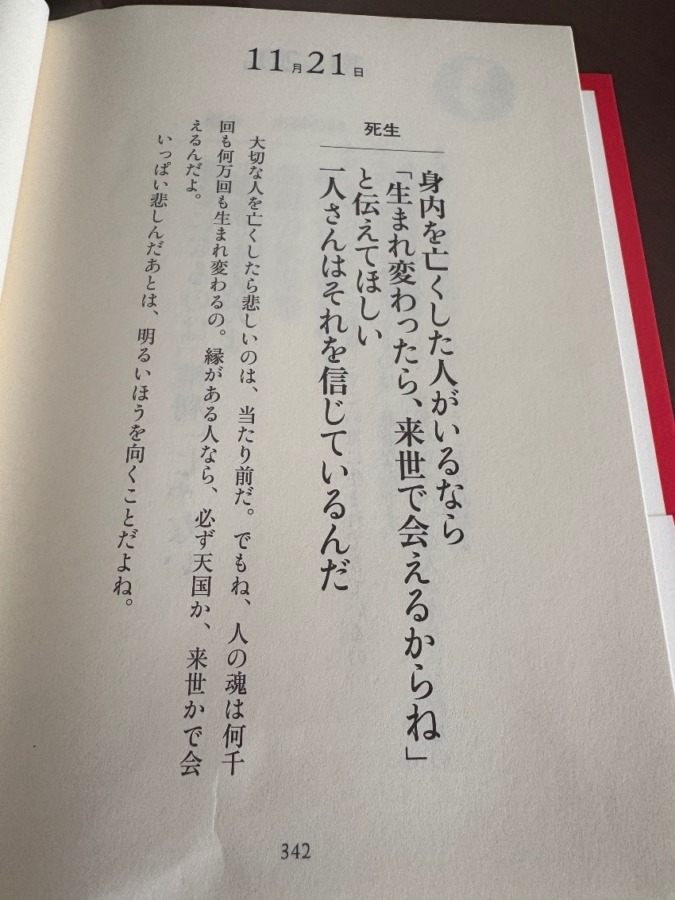 11月21日
死生
身内を亡くした人がいるなら
「生まれ変わったら、来世で会えるからね」
と伝えてほしい
一人さんはそれを信じているんだ
大切な人を亡くしたら悲しいのは、当たり前だ。でもね、人の魂は何千
回も何万回も生まれ変わるの。縁がある人なら、必ず天国か、来世かで会
えるんだよ。
いっぱい悲しんだあとは、明るいほうを向くことだよね。
342